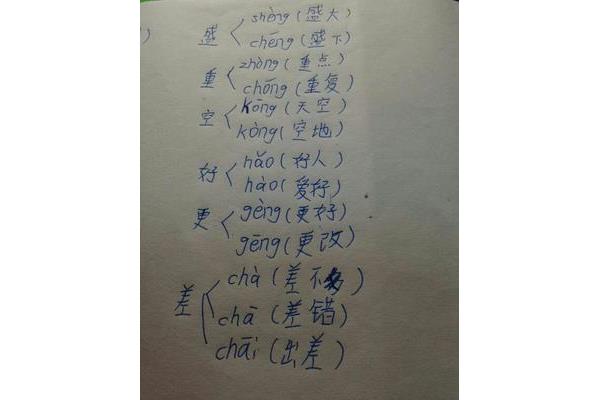 shèng(盛大)
盛
chéng(盛下)
zhòng(重点)
重
chóng(重复)
kōng(天空)
空
kòng(空地)
hǎo(好人)
好
hào(爱好)
gèng(更好)
更
gēng(更改)
chà(差不多)
差
chā(差错)
chāi(出差)